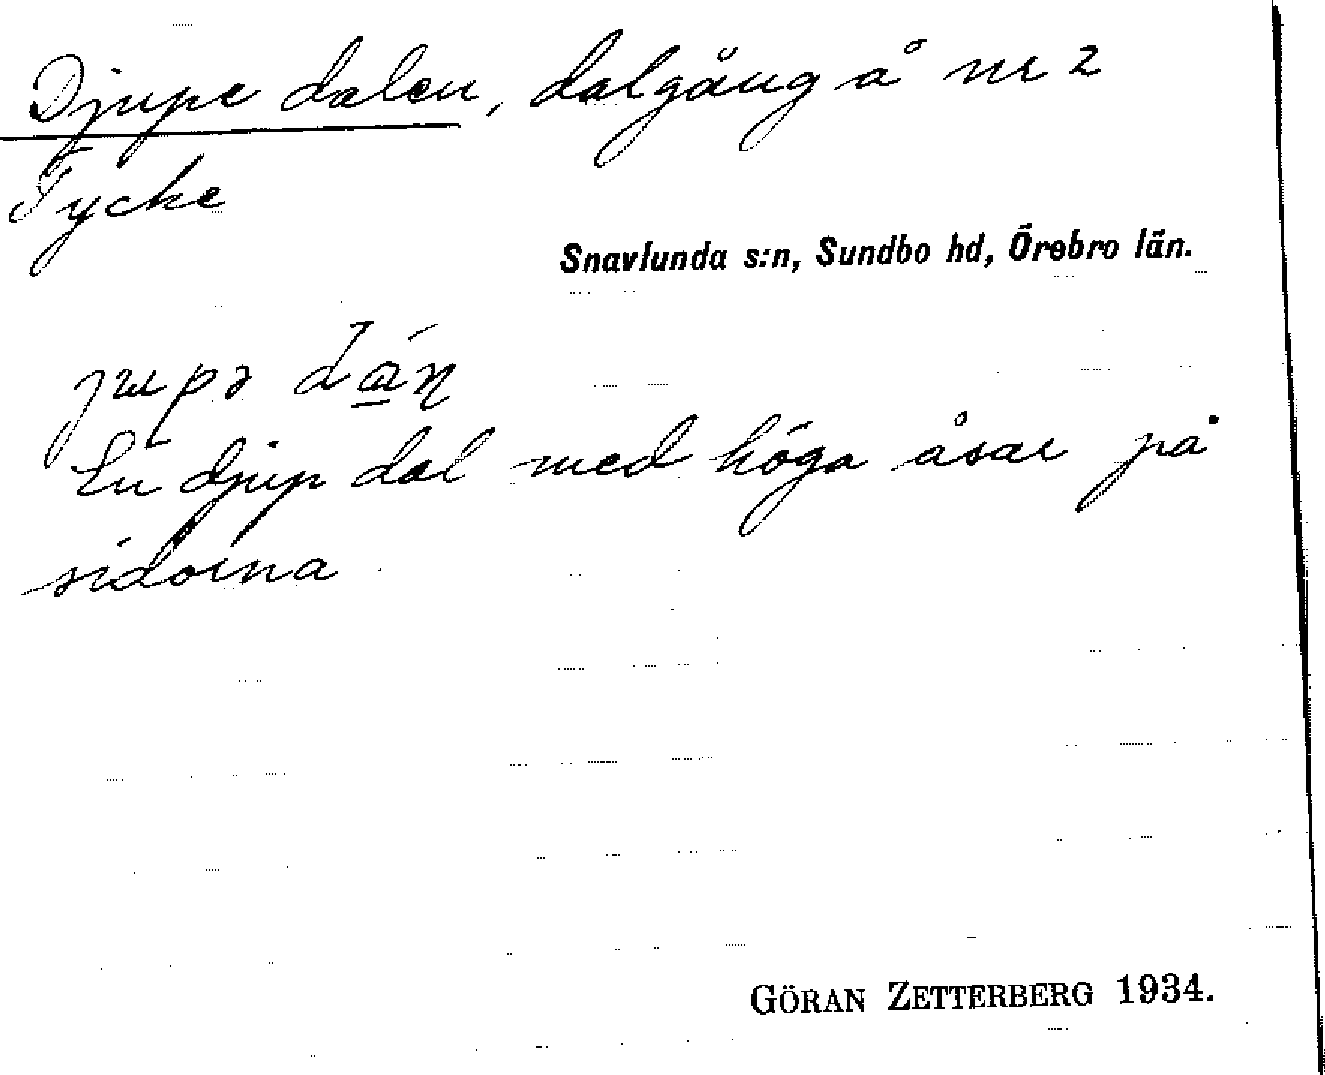 Djupe dalen, dalgång å nr 2
Tycke
Snavlunda s:n, Sundbo hd, Örebro län.
En djup dal med höga åsar på
sidorna
GÖRAN ZETTERBERG 1934.